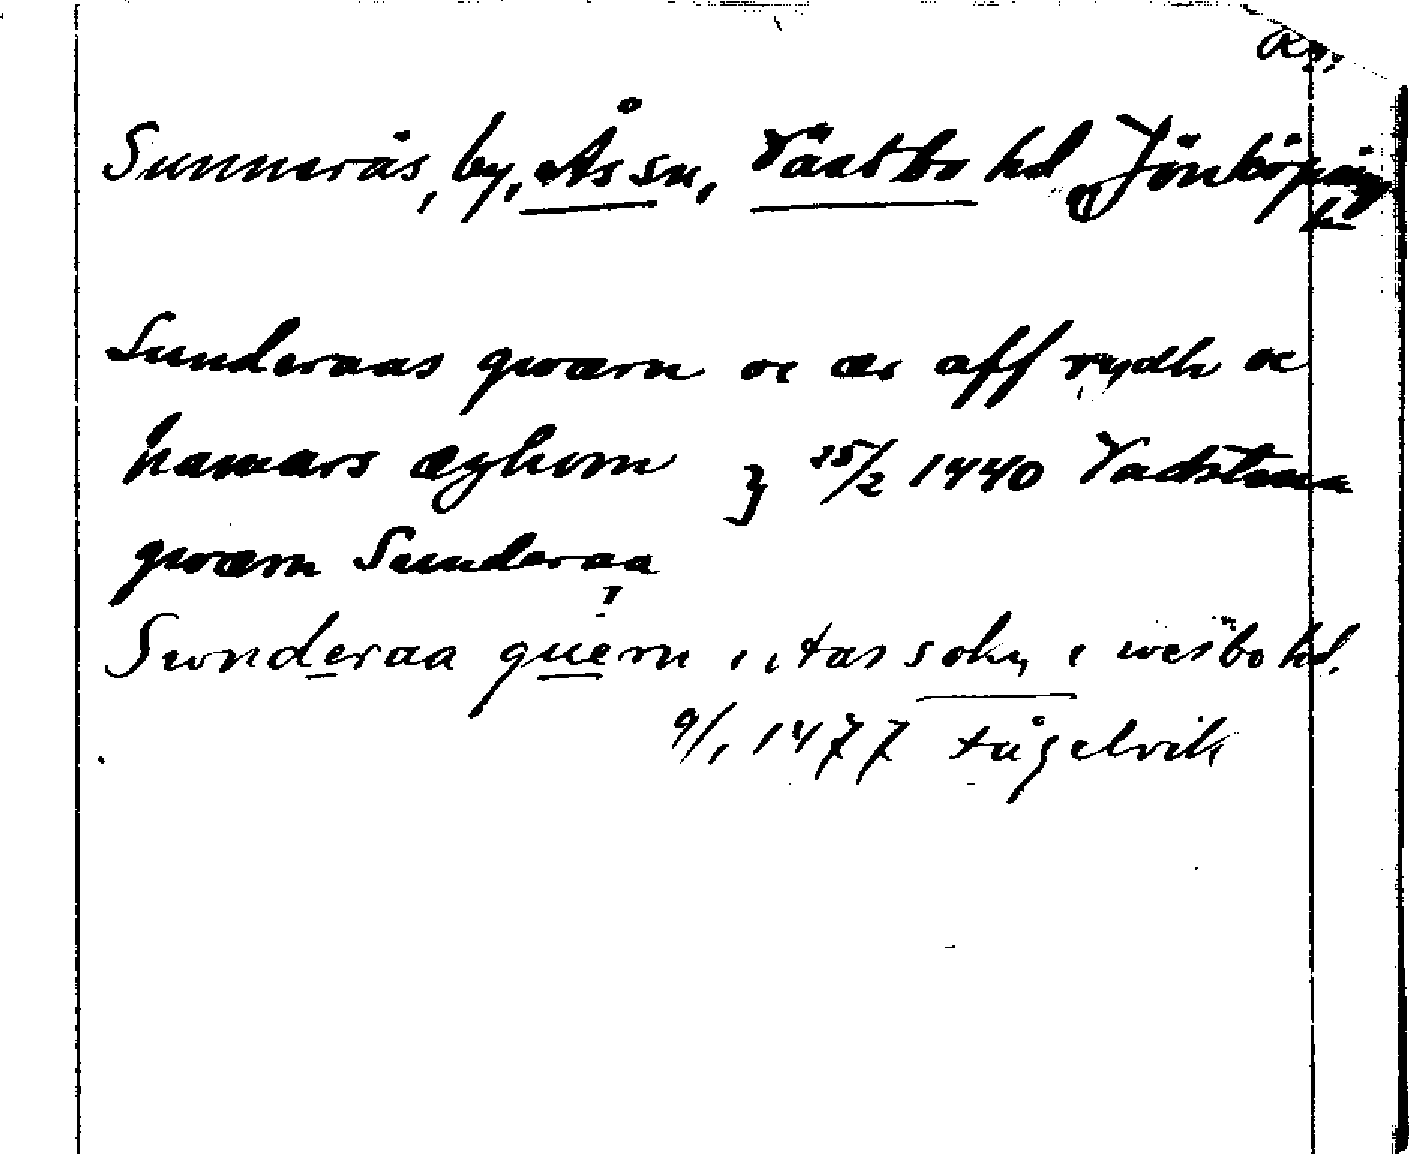 Sunnerås, by, Ås sn, Västbo hd, Jönköping
Sunderaas qwærn oc ær aff rydh oc
hamars æghom } 25/2 1440 Vadstena
qwærn Sunderaa
!
Swnderaa quern i, aas sokn i wesbo hd.
9/1 1477 Fågelvik